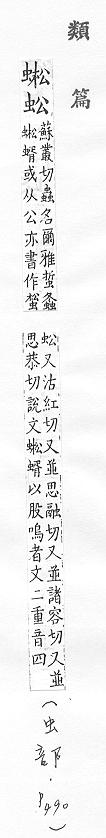 類篇
蜙蚣
蘇叢切蟲名爾雅蜇螽
蜙蝑或从公亦書作蜙
蚣又沽紅切又並思融切又並諸容切又並
思恭切說文蜙蝑以股鳴者文二重音四
(虫部.P490)